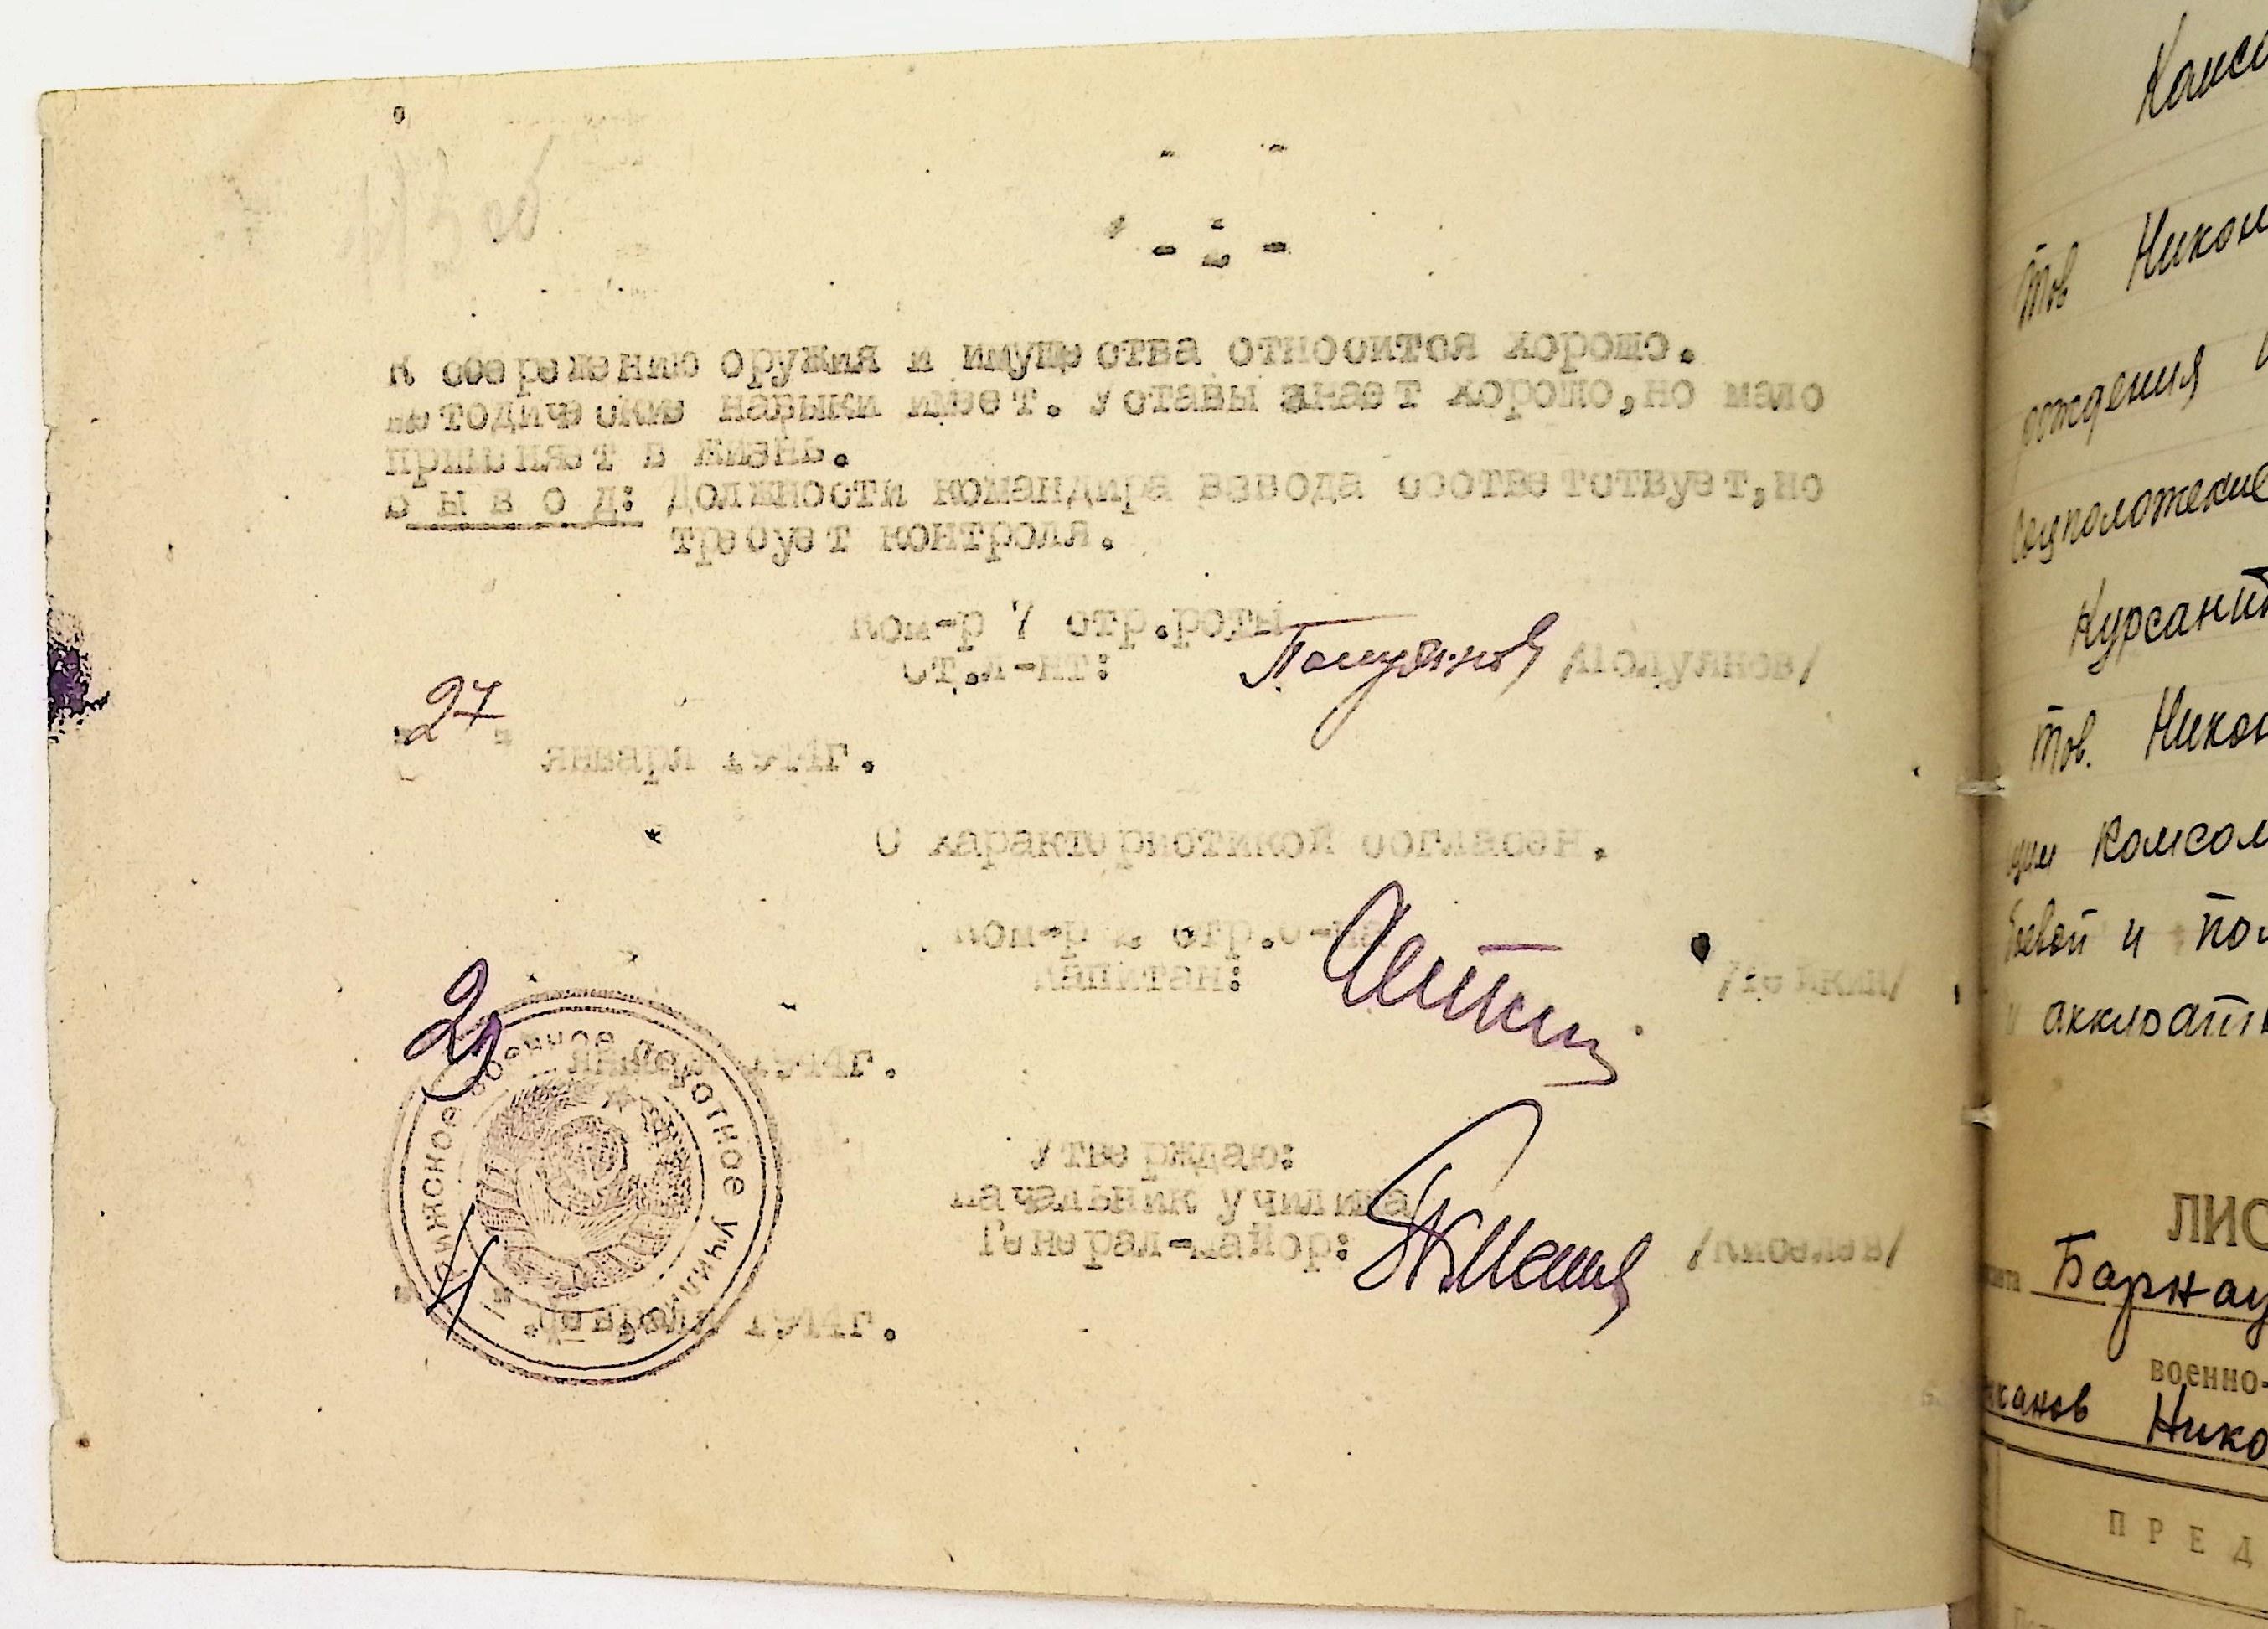 - 2 -
К сбережению оружия и имущества относится хорошо.
методические навыки имеет. Уставы знает хорошо, но мало
применяет в жизнь.
В ы в о д: Должности командира взвода соответствует, но
требует контроля.
Ком-р 7 стр.роты
Ст.л-нт: /Полуянов/
"27" января 1944г.
С характеристикой согласен.
Ком-р стр.б-на
Капитан:
29 января 1944г.
Утверждаю:
Начальник училища
Генерал-майор: /Киселев/
"4" февраля 1944г.
военное пехотное училище
Комс
Тов Никон
рождения
Соцположение
Курсант
Тов. Никон
Комсом
боевой и пол
и аккурат
ЛИС
Барнау
военно-
Нико
ПРЕД